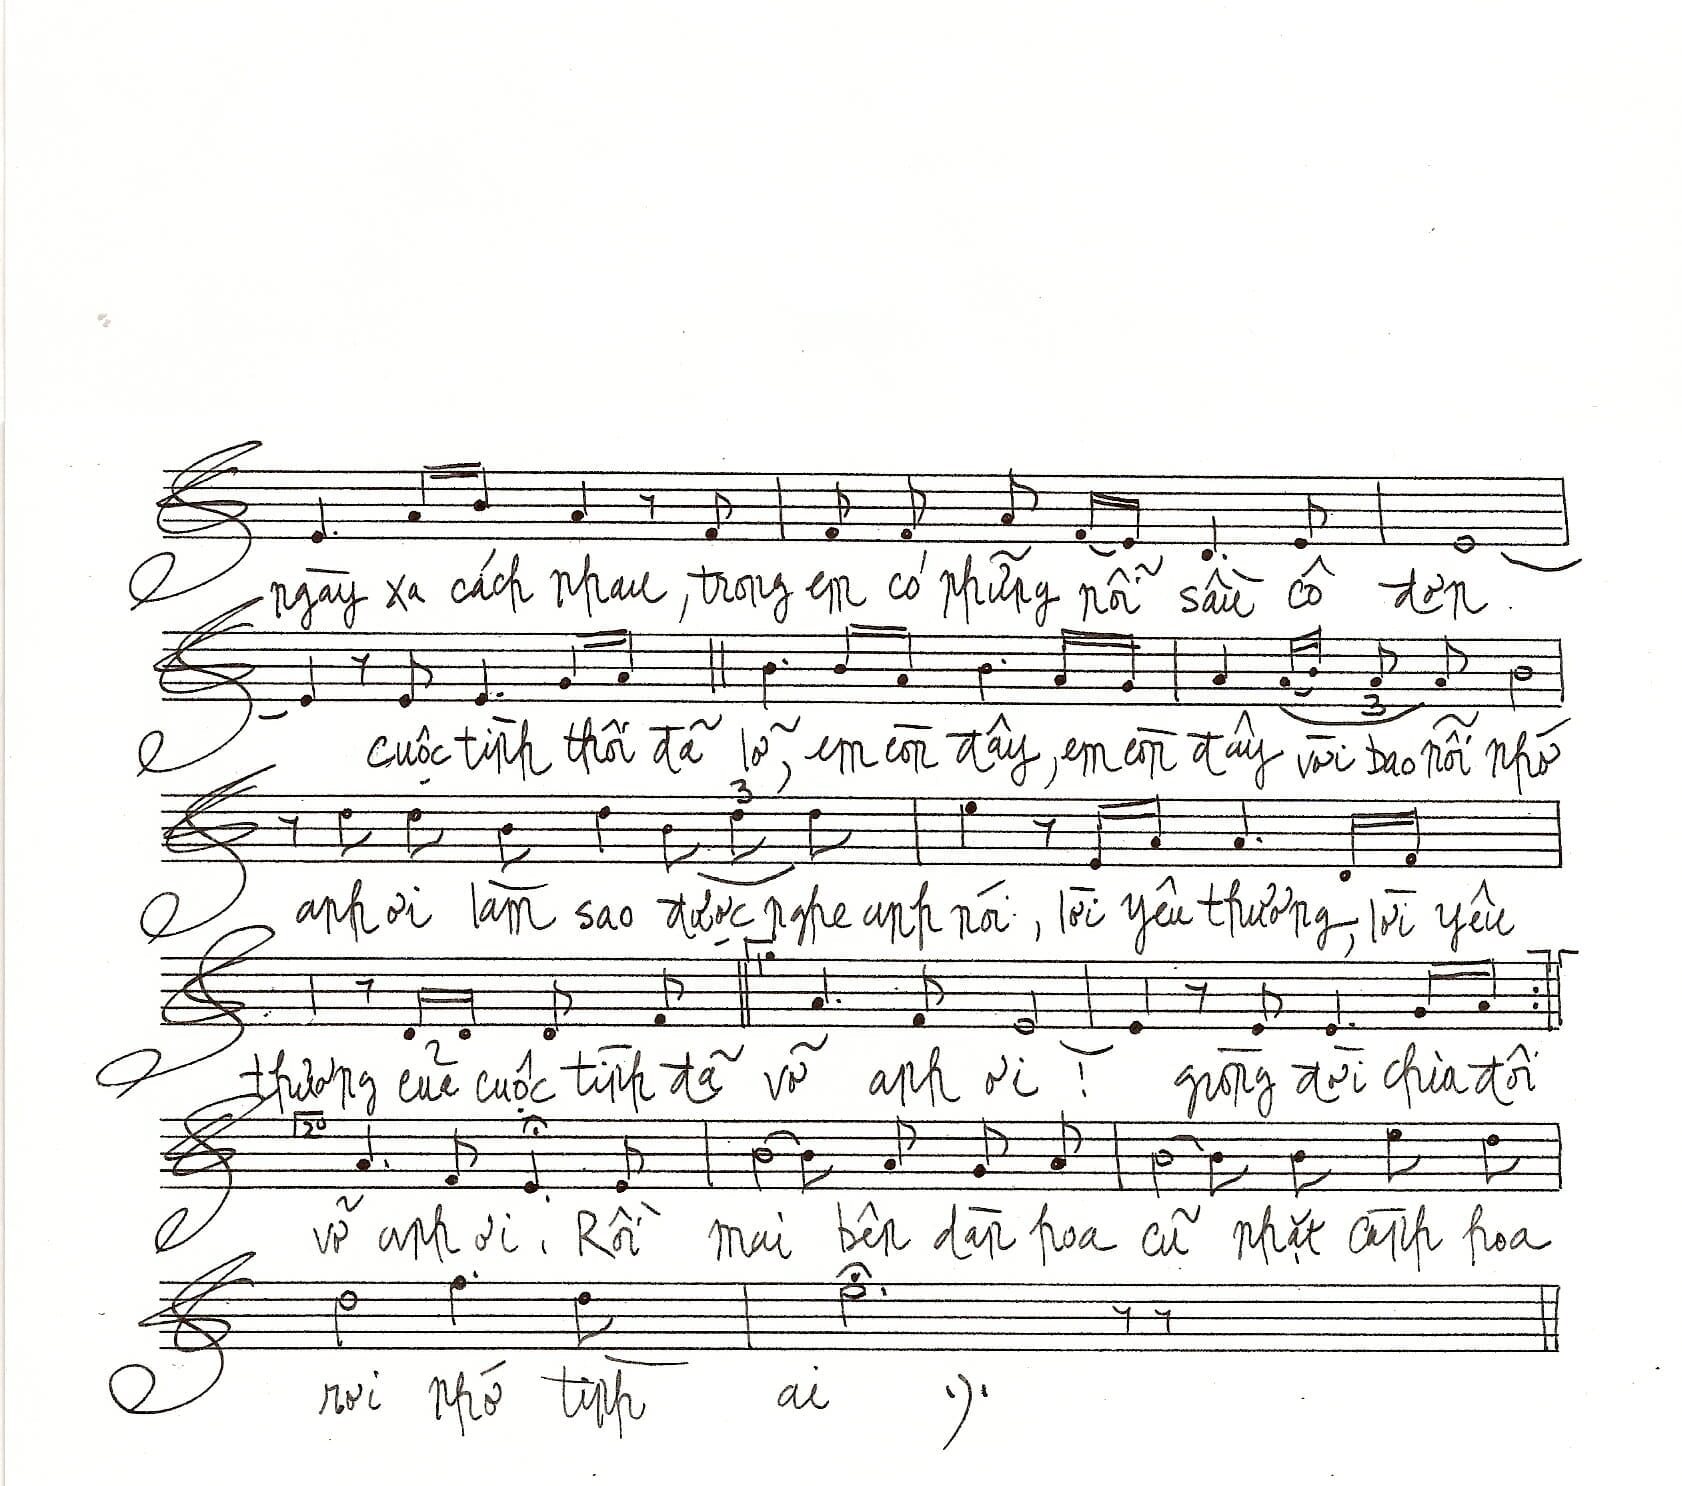 ngày xa cách nhau, trong em có những nỗi sầu cô đơn.
cuộc tình thôi đã lỡ, em còn đây, em còn đây với bao nỗi nhớ
3
3
anh ơi làm sao được nghe anh nói, lời yêu thương, lời yêu
thương của cuộc tình đã vỡ anh ơi! giòng đời chia đôi
20
vỡ anh ơi. Rồi mai bên dàn hoa cũ nhặt cành hoa
rơi nhớ tình ai